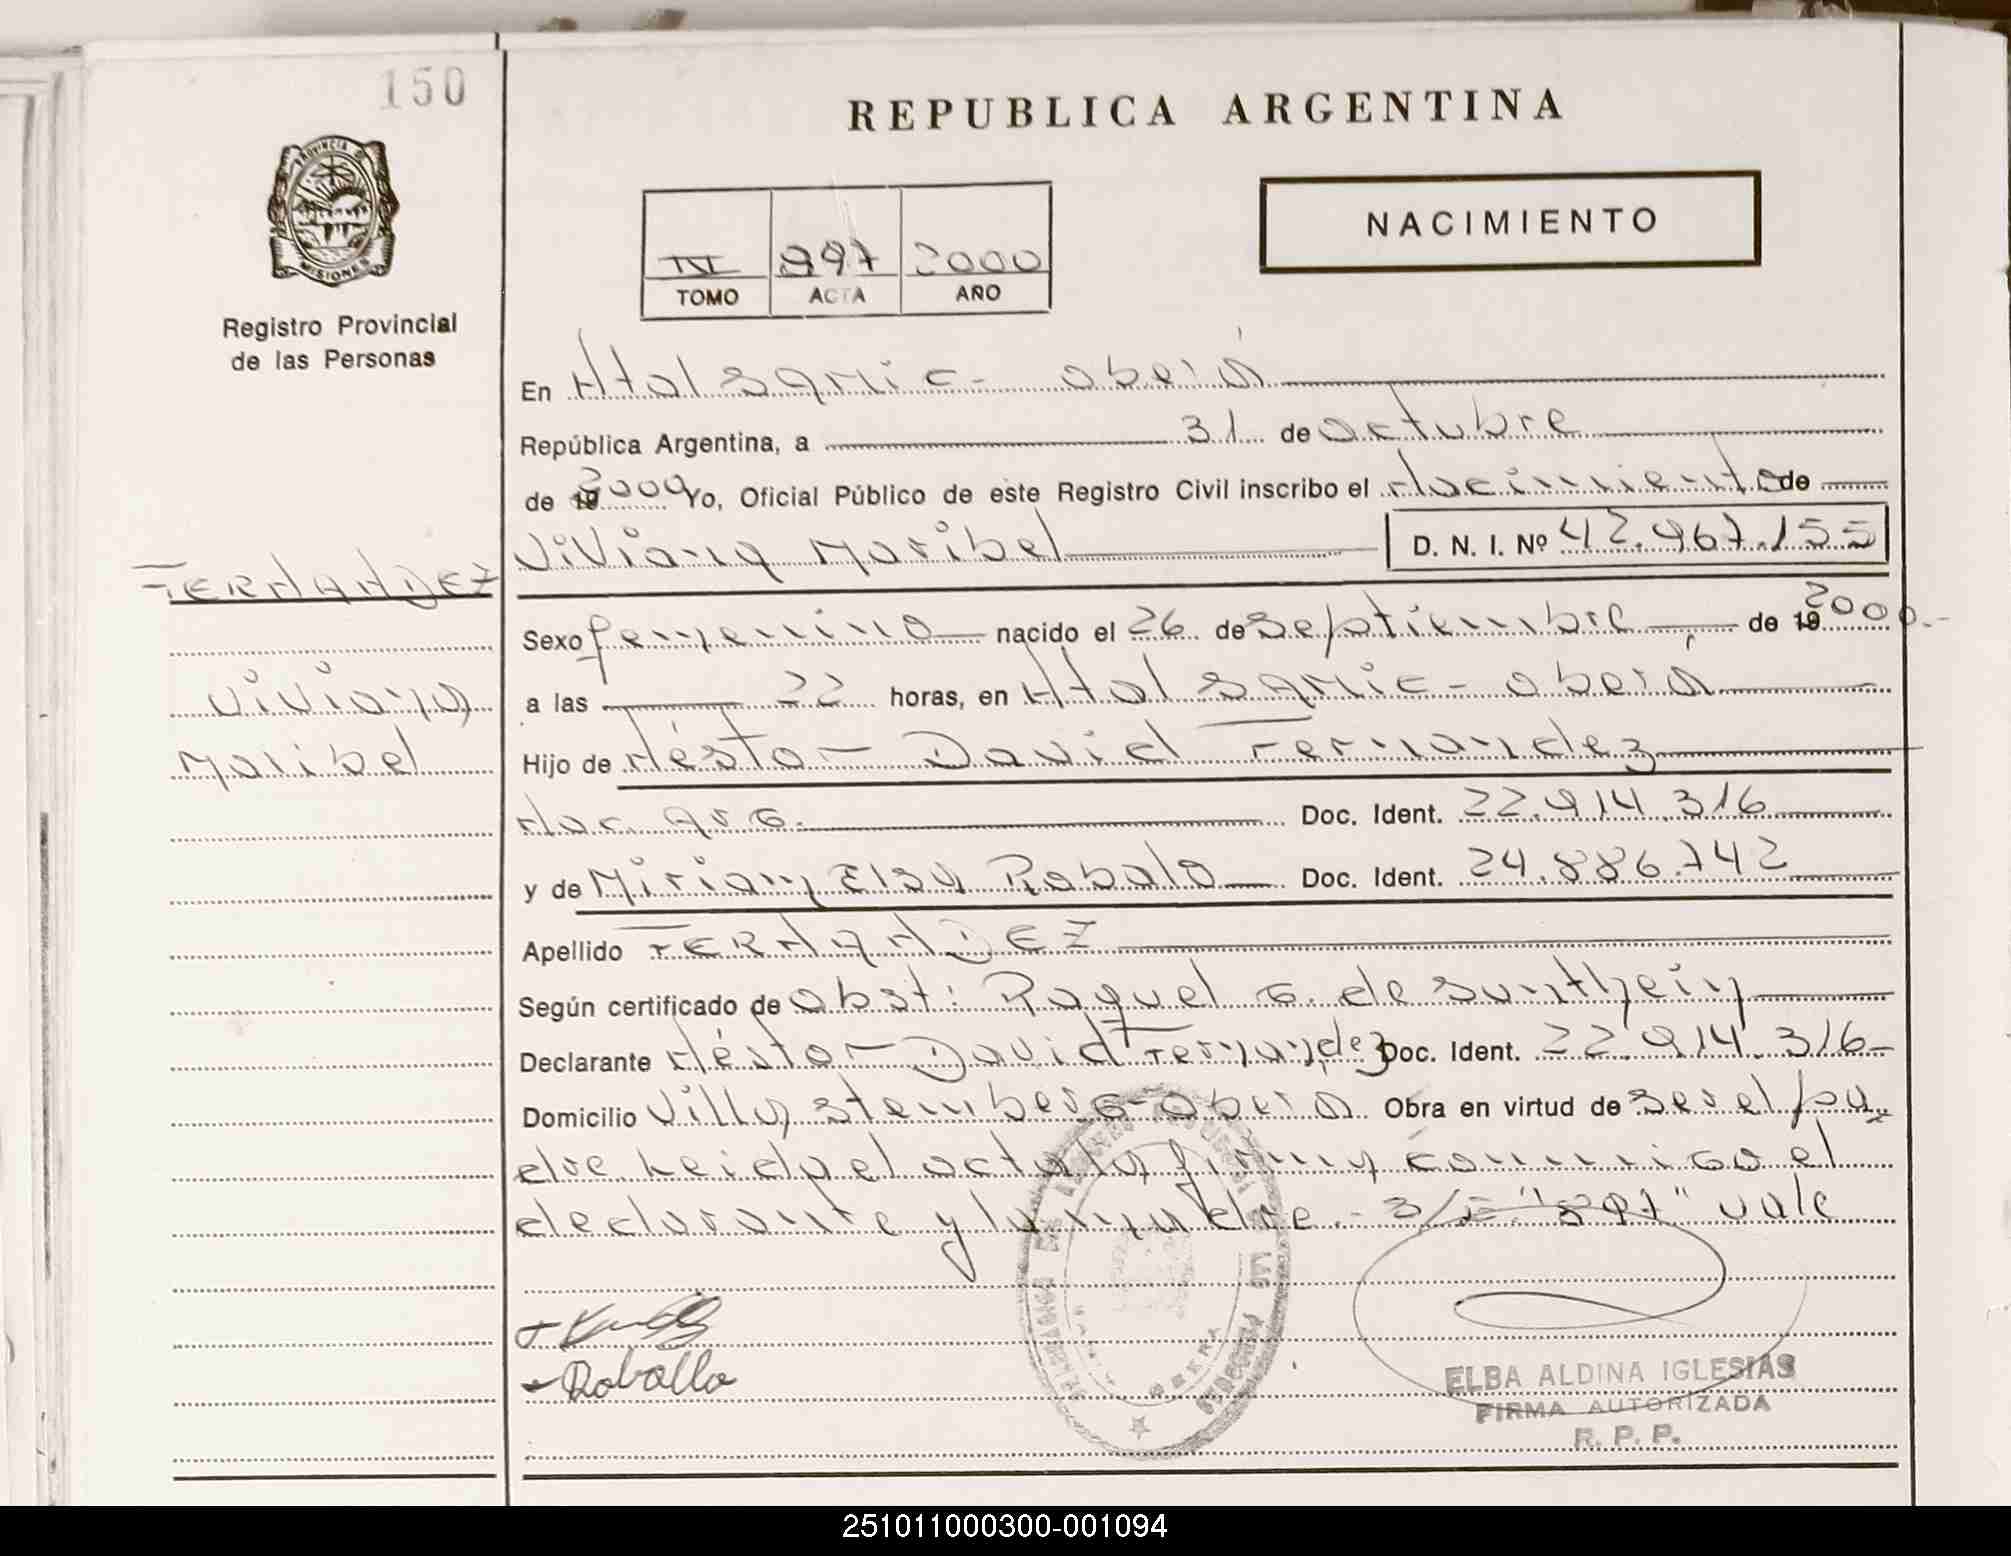 150
REPUBLICA ARGENTINA
NACIMIENTO
PROVINCIA DE
MISIONES
Registro Provincial
de las Personas
III 997 2000
TOMO ACTA AÑO
En Htal Samic - Oberá
República Argentina, a 31 de Octubre
de 19 2000 Yo, Oficial Público de este Registro Civil inscribo el Nacimiento de
Viviana Maribel D. N. I. Nº 42.967.155
FERNANDEZ
Viviana
Maribel
Sexo femenino nacido el 26 de Septiembre de 19 2000.-
a las 22 horas, en Htal Samic - Oberá
Hijo de Néstor David Fernandez
Nac. Arg. Doc. Ident. 22.914.316
y de Miriam Elsa Robalo Doc. Ident. 24.886.742
Apellido FERNANDEZ
Según certificado de Obst: Raquel G. de Sunthein
Declarante Néstor David Fernandez Doc. Ident. 22.914.316-
Domicilio Villa Stemberg - Oberá Obra en virtud de Ser el pa
dre. Leida el acta la firman conmigo el
declarante y la madre.- S/E " " vale
Roballo
ELBA ALDINA IGLESIAS
FIRMA AUTORIZADA
R. P. P.
251011000300-001094